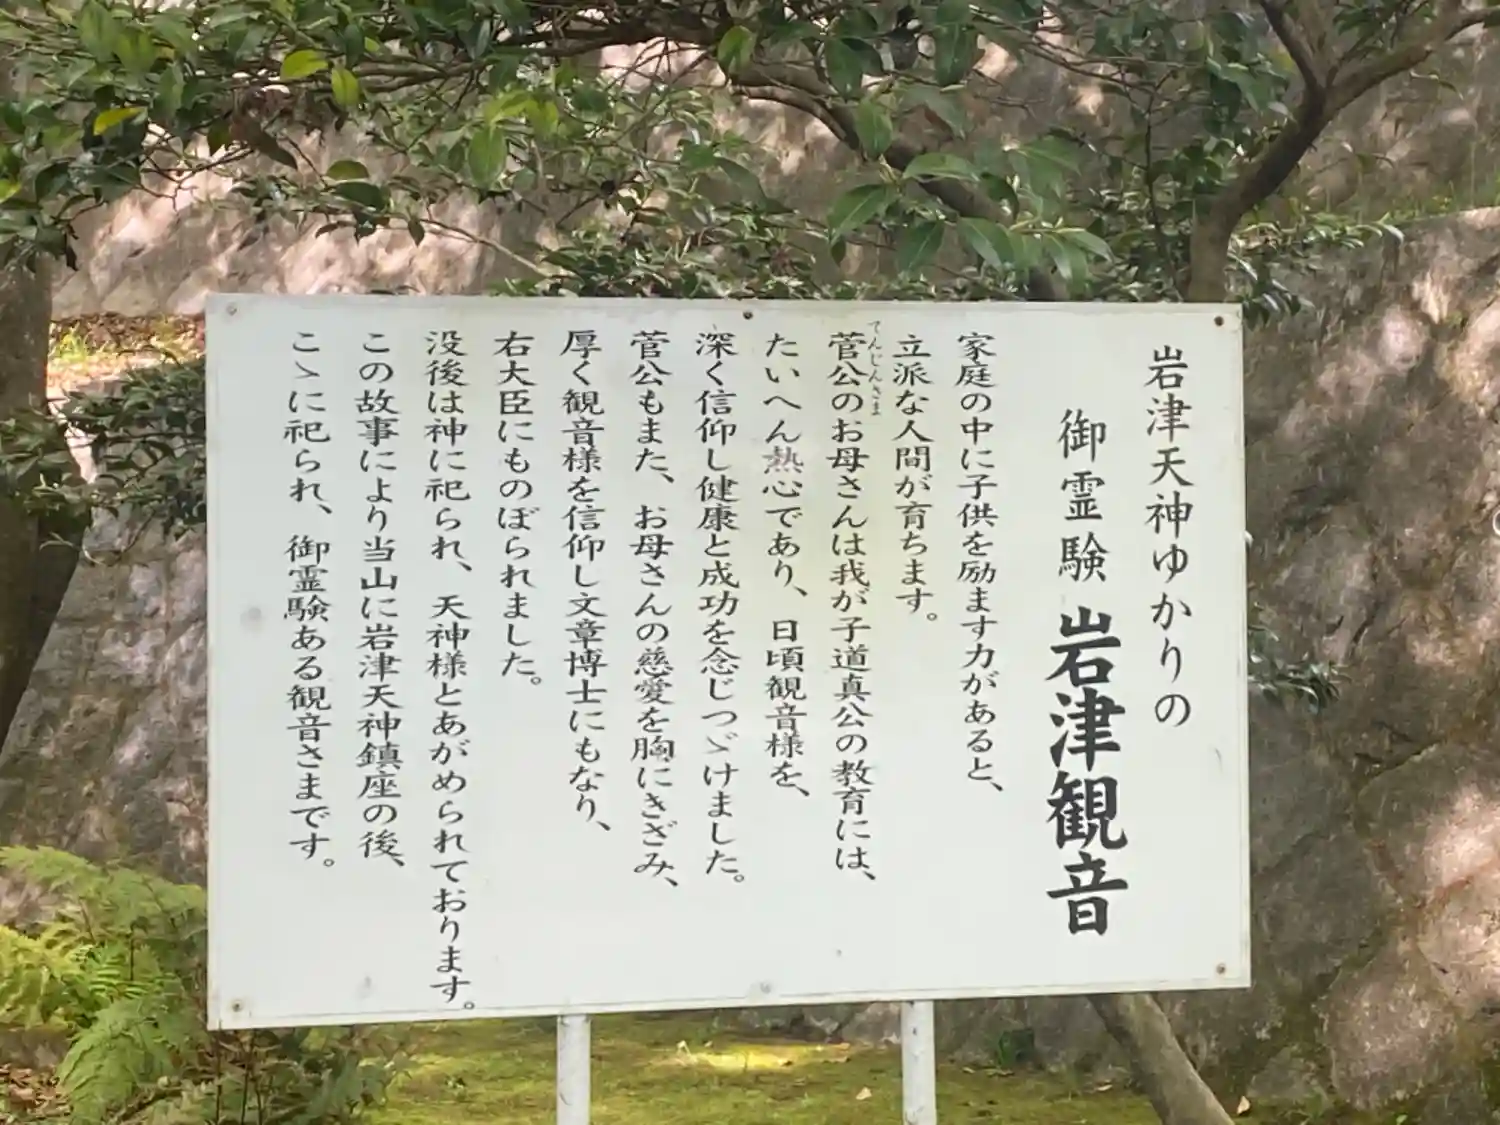 岩津天神ゆかりの
御霊験 岩津観音
家庭の中に子供を励ます力があると、
立派な人間が育ちます。
てんじんさま
菅公のお母さんは我が子道真公の教育には、
たいへん熱心であり、日頃観音様を、
深く信仰し健康と成功を念じつゞけました。
菅公もまた、お母さんの慈愛を胸にきざみ、
厚く観音様を信仰し文章博士にもなり、
右大臣にものぼられました。
没後は神に祀られ、天神様とあがめられております。
この故事により当山に岩津天神鎮座の後、
こゝに祀られ、御霊験ある観音さまです。